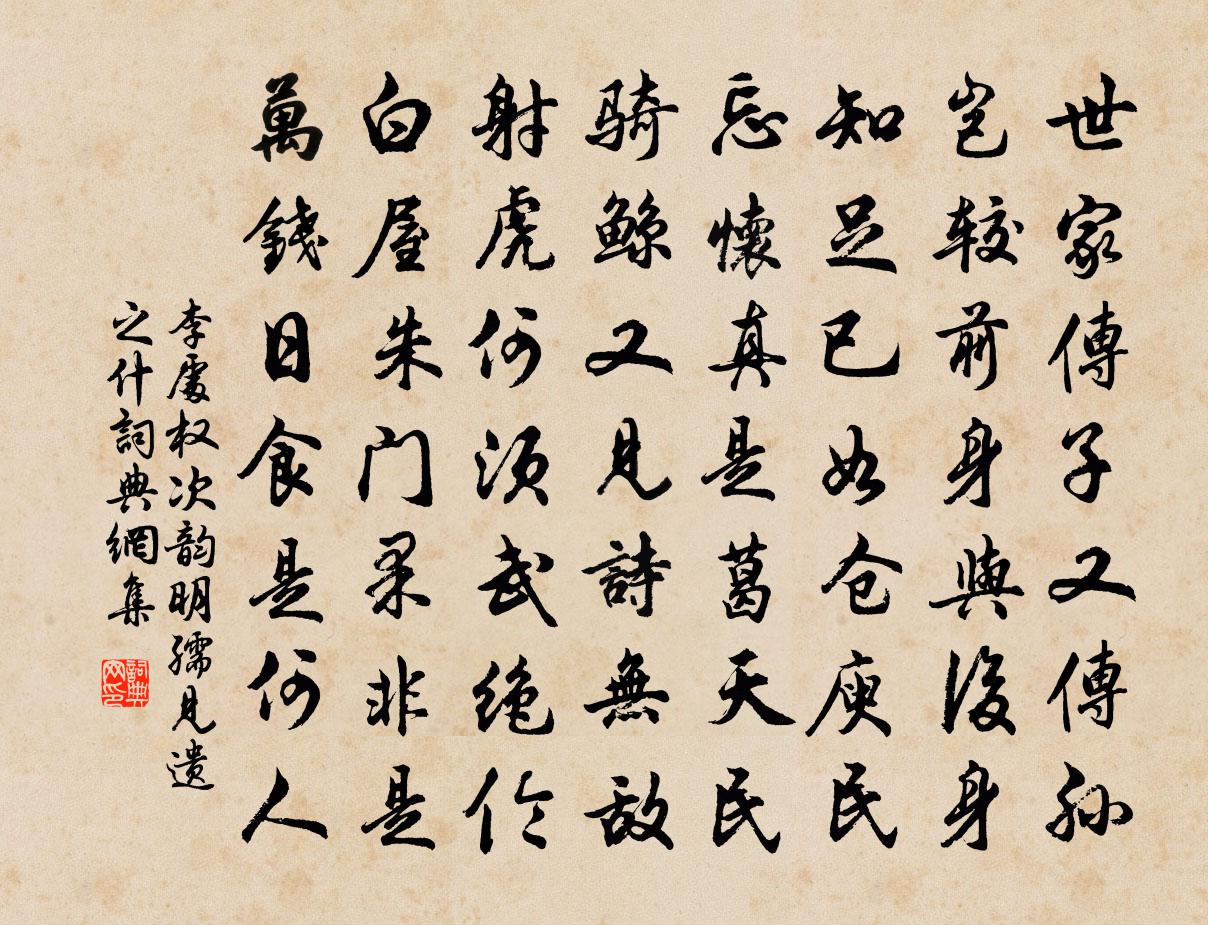 世家傳子又傳孙
岂较前身與後身
知足已如仓庾氏
忘懷真是葛天民
骑鲸又見詩無敌
射虎何須武绝伦
白屋朱门果非是
萬錢日食是何人
李處权次韵明孺見遗
之什詞典網集
詞典
网印